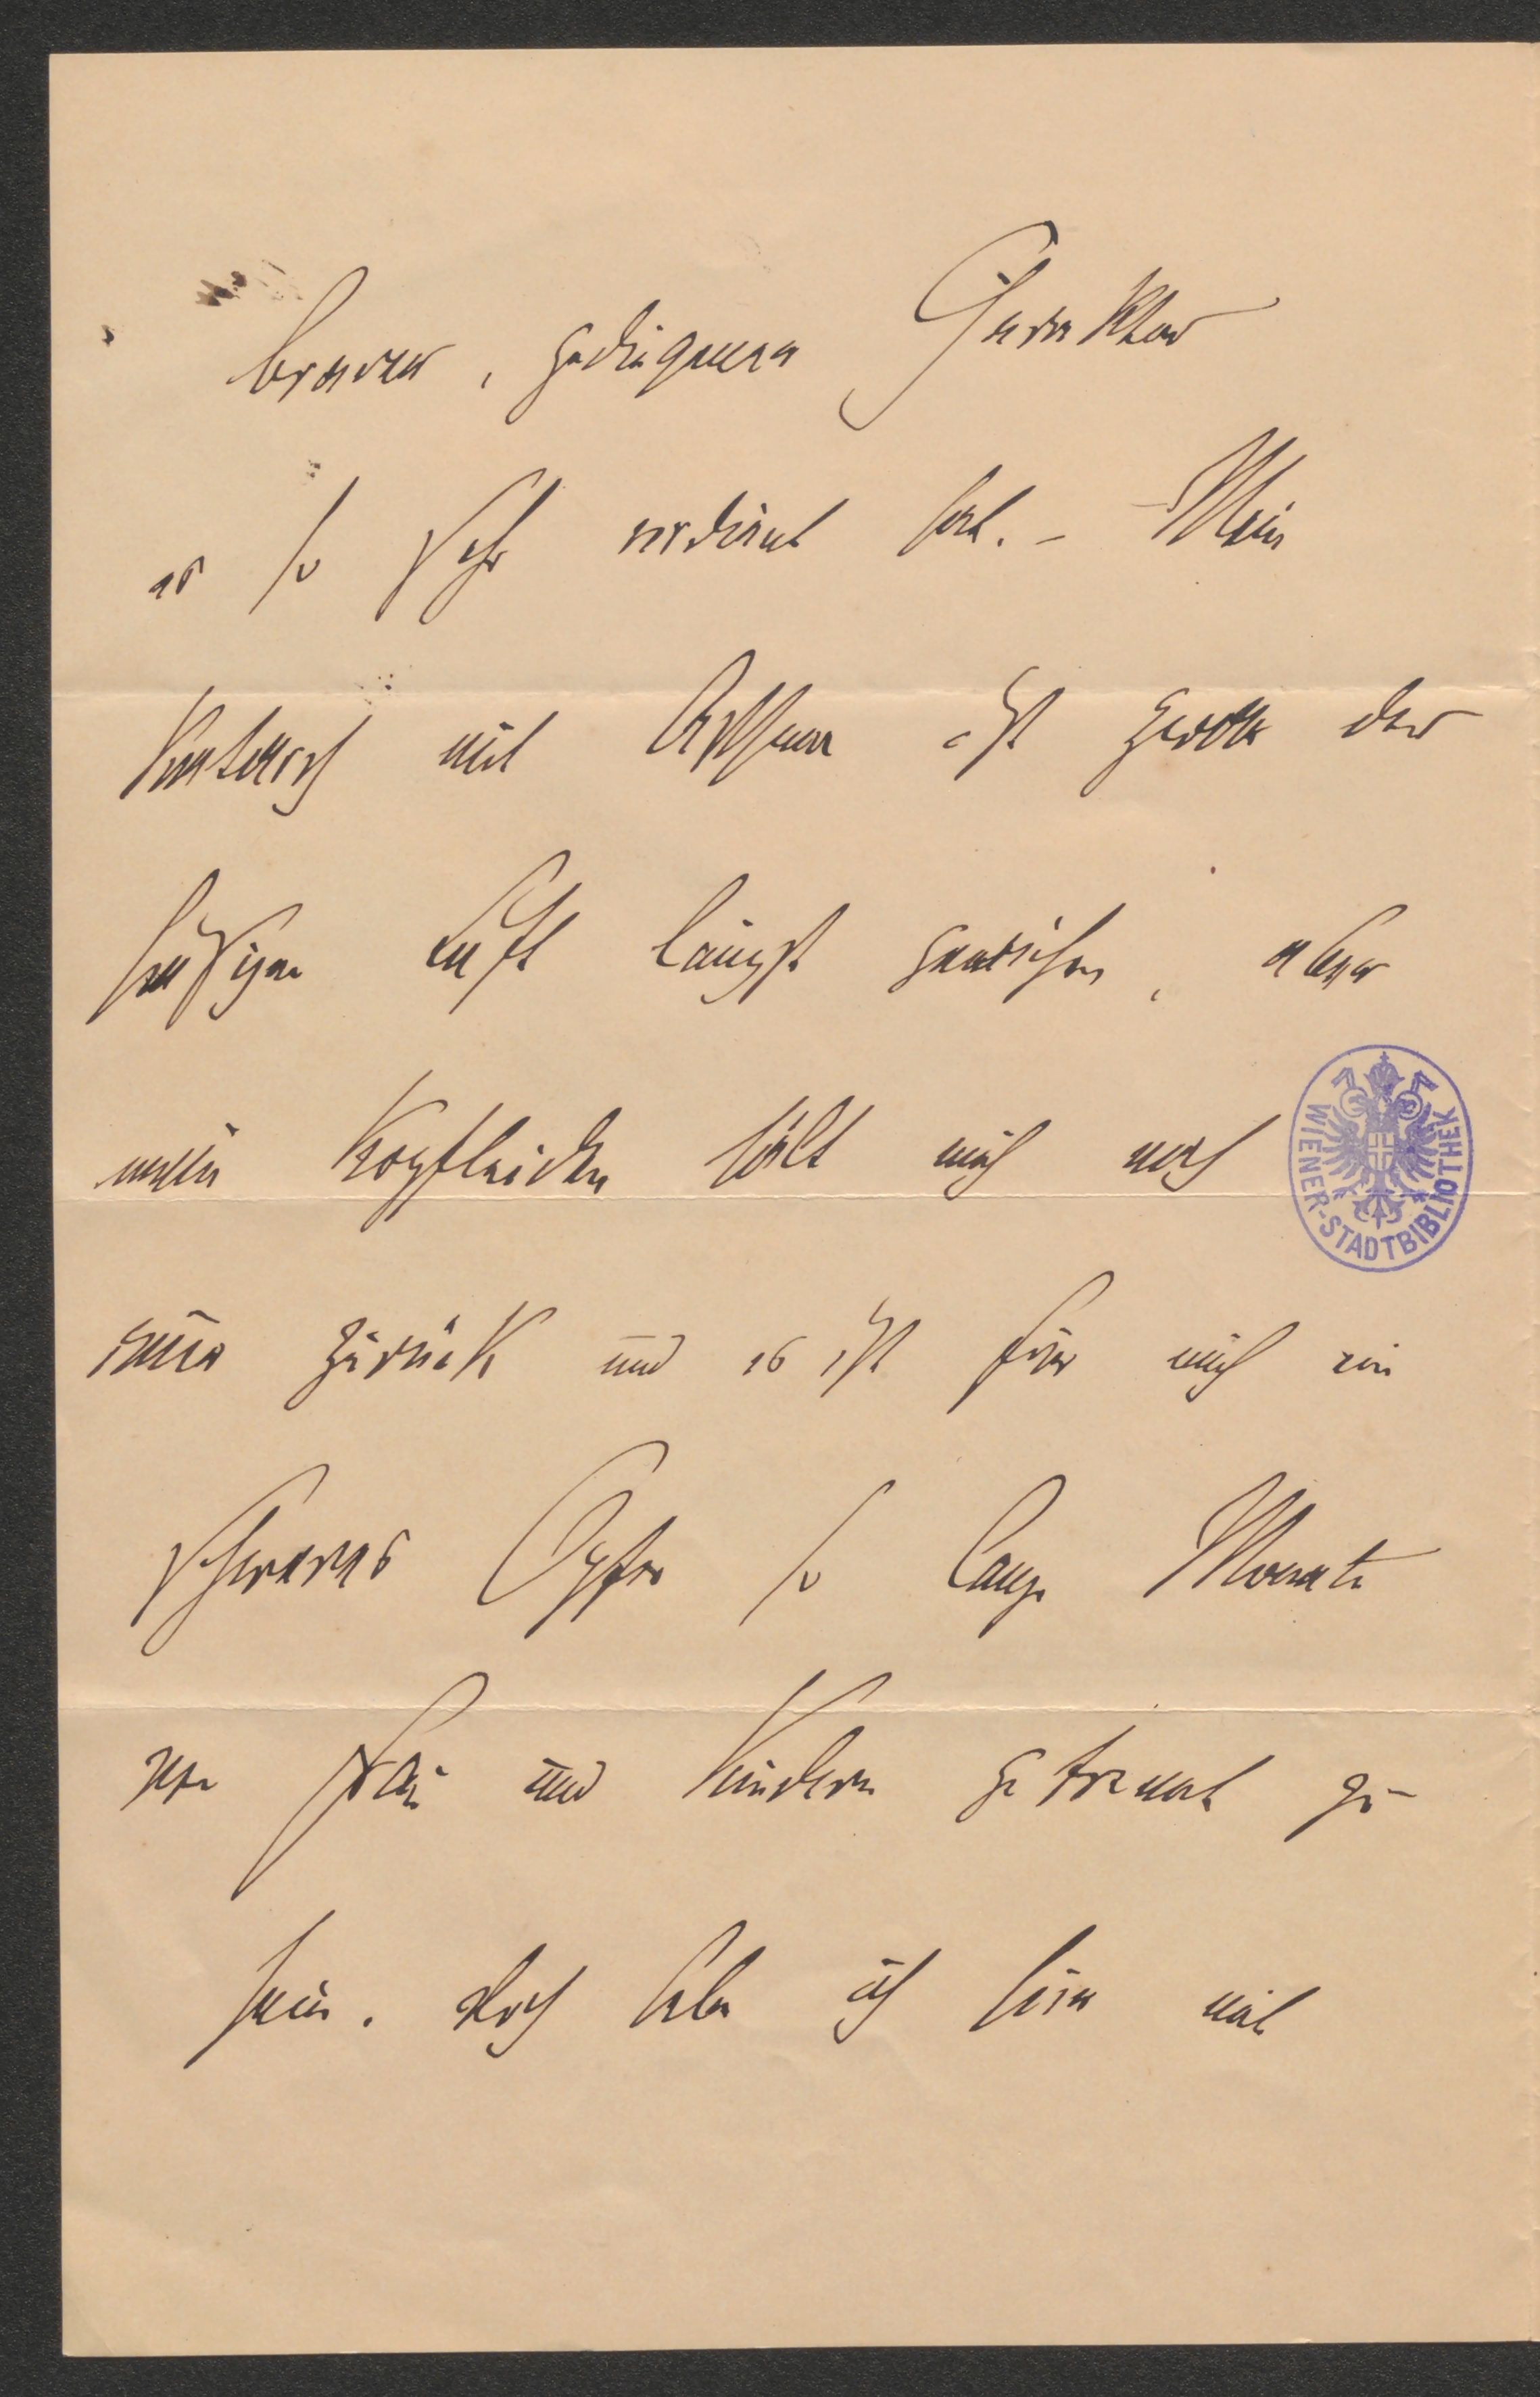 braver, gediegener Charakter
es so sehr verdient hat. – Mein
Katarrh mit Asthma ist zwar der
hiesigen Luft längst gewichen, aber
mein Kopfleiden hält mich noch
immer zurück und es ist für mich ein
schweres Opfer so lange Monate
von Frau und Kindern getrennt zu
sein. Doch habe ich hier mit
WIENER-STADTBIBLIOTHEK